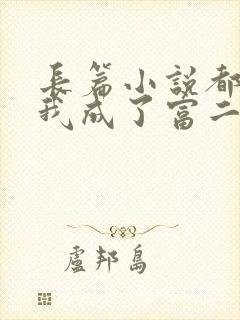 長篇小說都
我成了富二
盧邦島